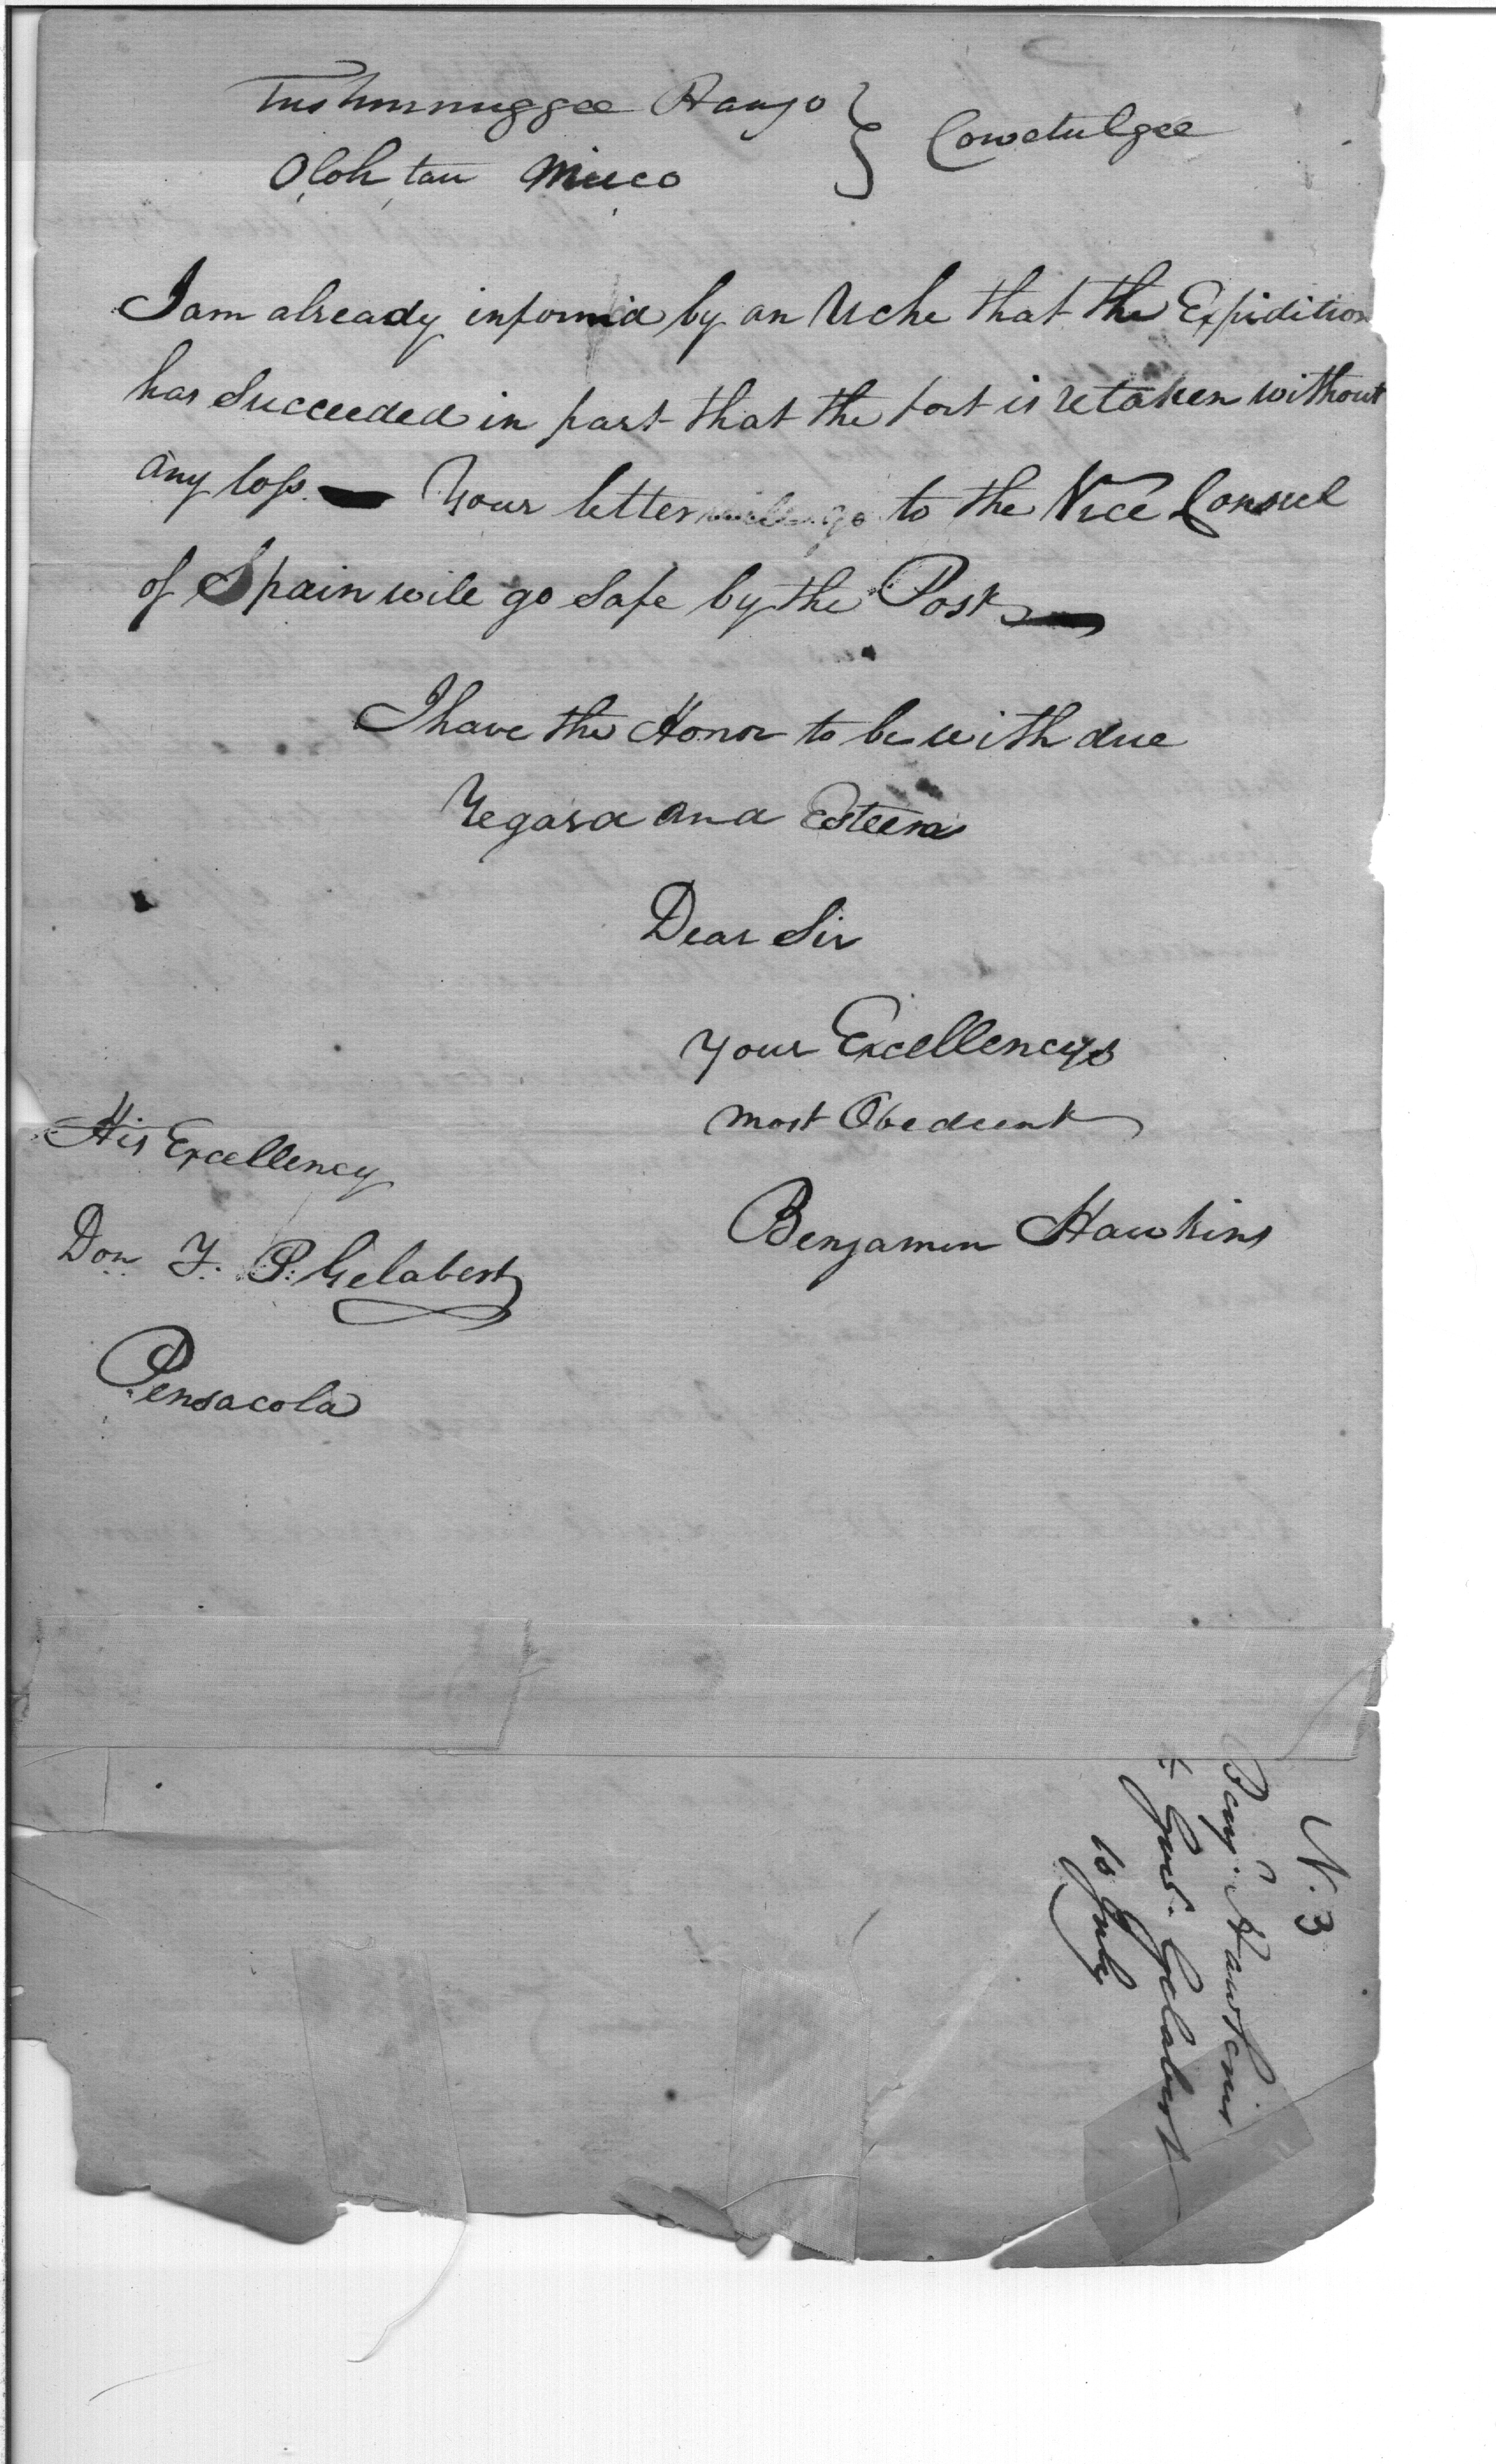 Tushunnuggee Haujo } Cowetulgee
Oloh tau Micco
I am already inform'd by an Uche that the Expidition
has Succeeded in part that the fort is retaken without
any loss — Your letter will go to the Vice Consul
of Spain will go Safe by the Post —
I have the Honor to be with due
regard and Esteem
Dear Sir
your Excellencys
most Obedient
Benjamin Hawkins
His Excellency
Don F. P. Gelabert
Pensacola
N. 3
Benj.n Hawkins
Gov.r Gelabert
10 July